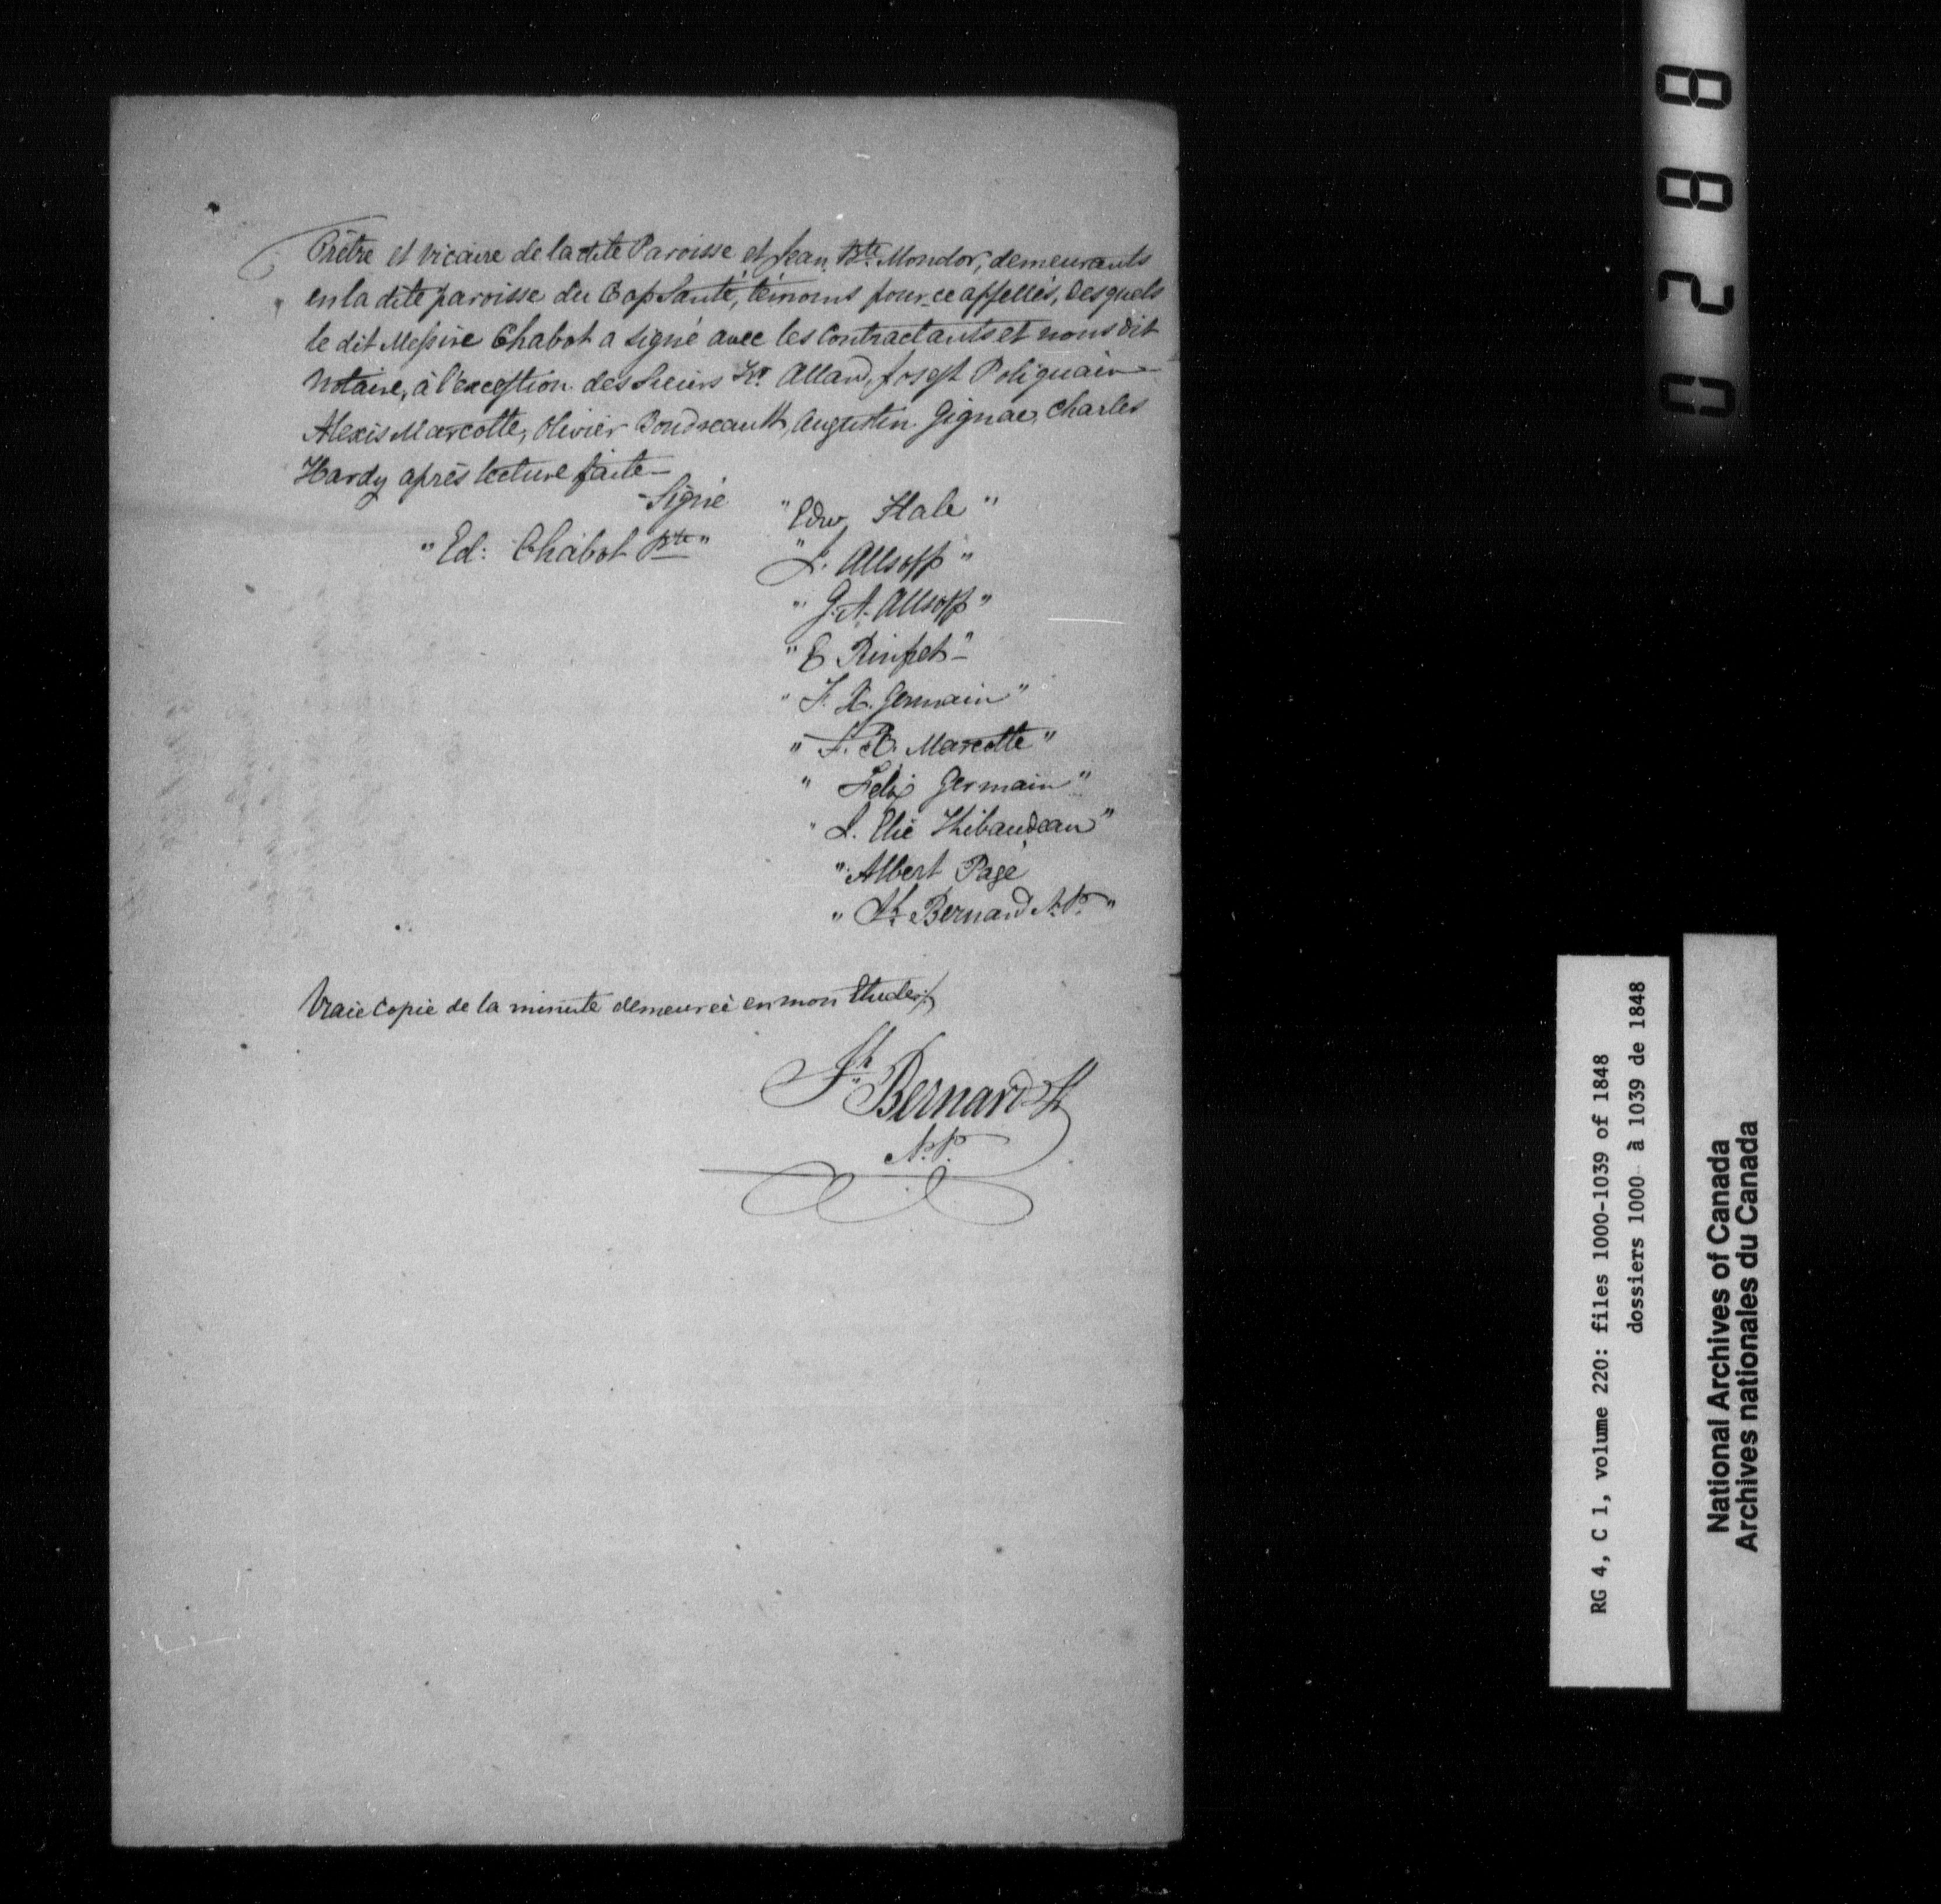 Prêtre et vicaire de la dite Paroisse et Jean Bte. Mondor, demeurants
en la dite paroisse du Cap Santé, témoins pour ce appellés, Desquels
le dit Messire Chabot a signé avec les Contractants et nous dit
Notaire, à l'exception des Sieurs Allard, Joseph Poliquain
Alexis Marcotte, Olivier Boudreault, Augustin Gignac, Charles
Hardy après lecture faite—
Signé "Edw Hale"
"Ed: Chabot Ptre"
"J. Allsopp"
"G. A. Allsopp"
"E Rinfret"
"F. X. Germain"
"F. X. Marcotte"
"Felix Germain"
"L. Elie Thibaudeau"
"Albert Pagé
"Jh. Bernard N.P."
Vraie Copie de la minute demeureé en mon Etude./.
Jh. Bernard
N.P.
0288
RG 4, C 1, volume 220: files 1000-1039 of 1848
dossiers 1000 à 1039 de 1848
National Archives of Canada
Archives nationales du Canada